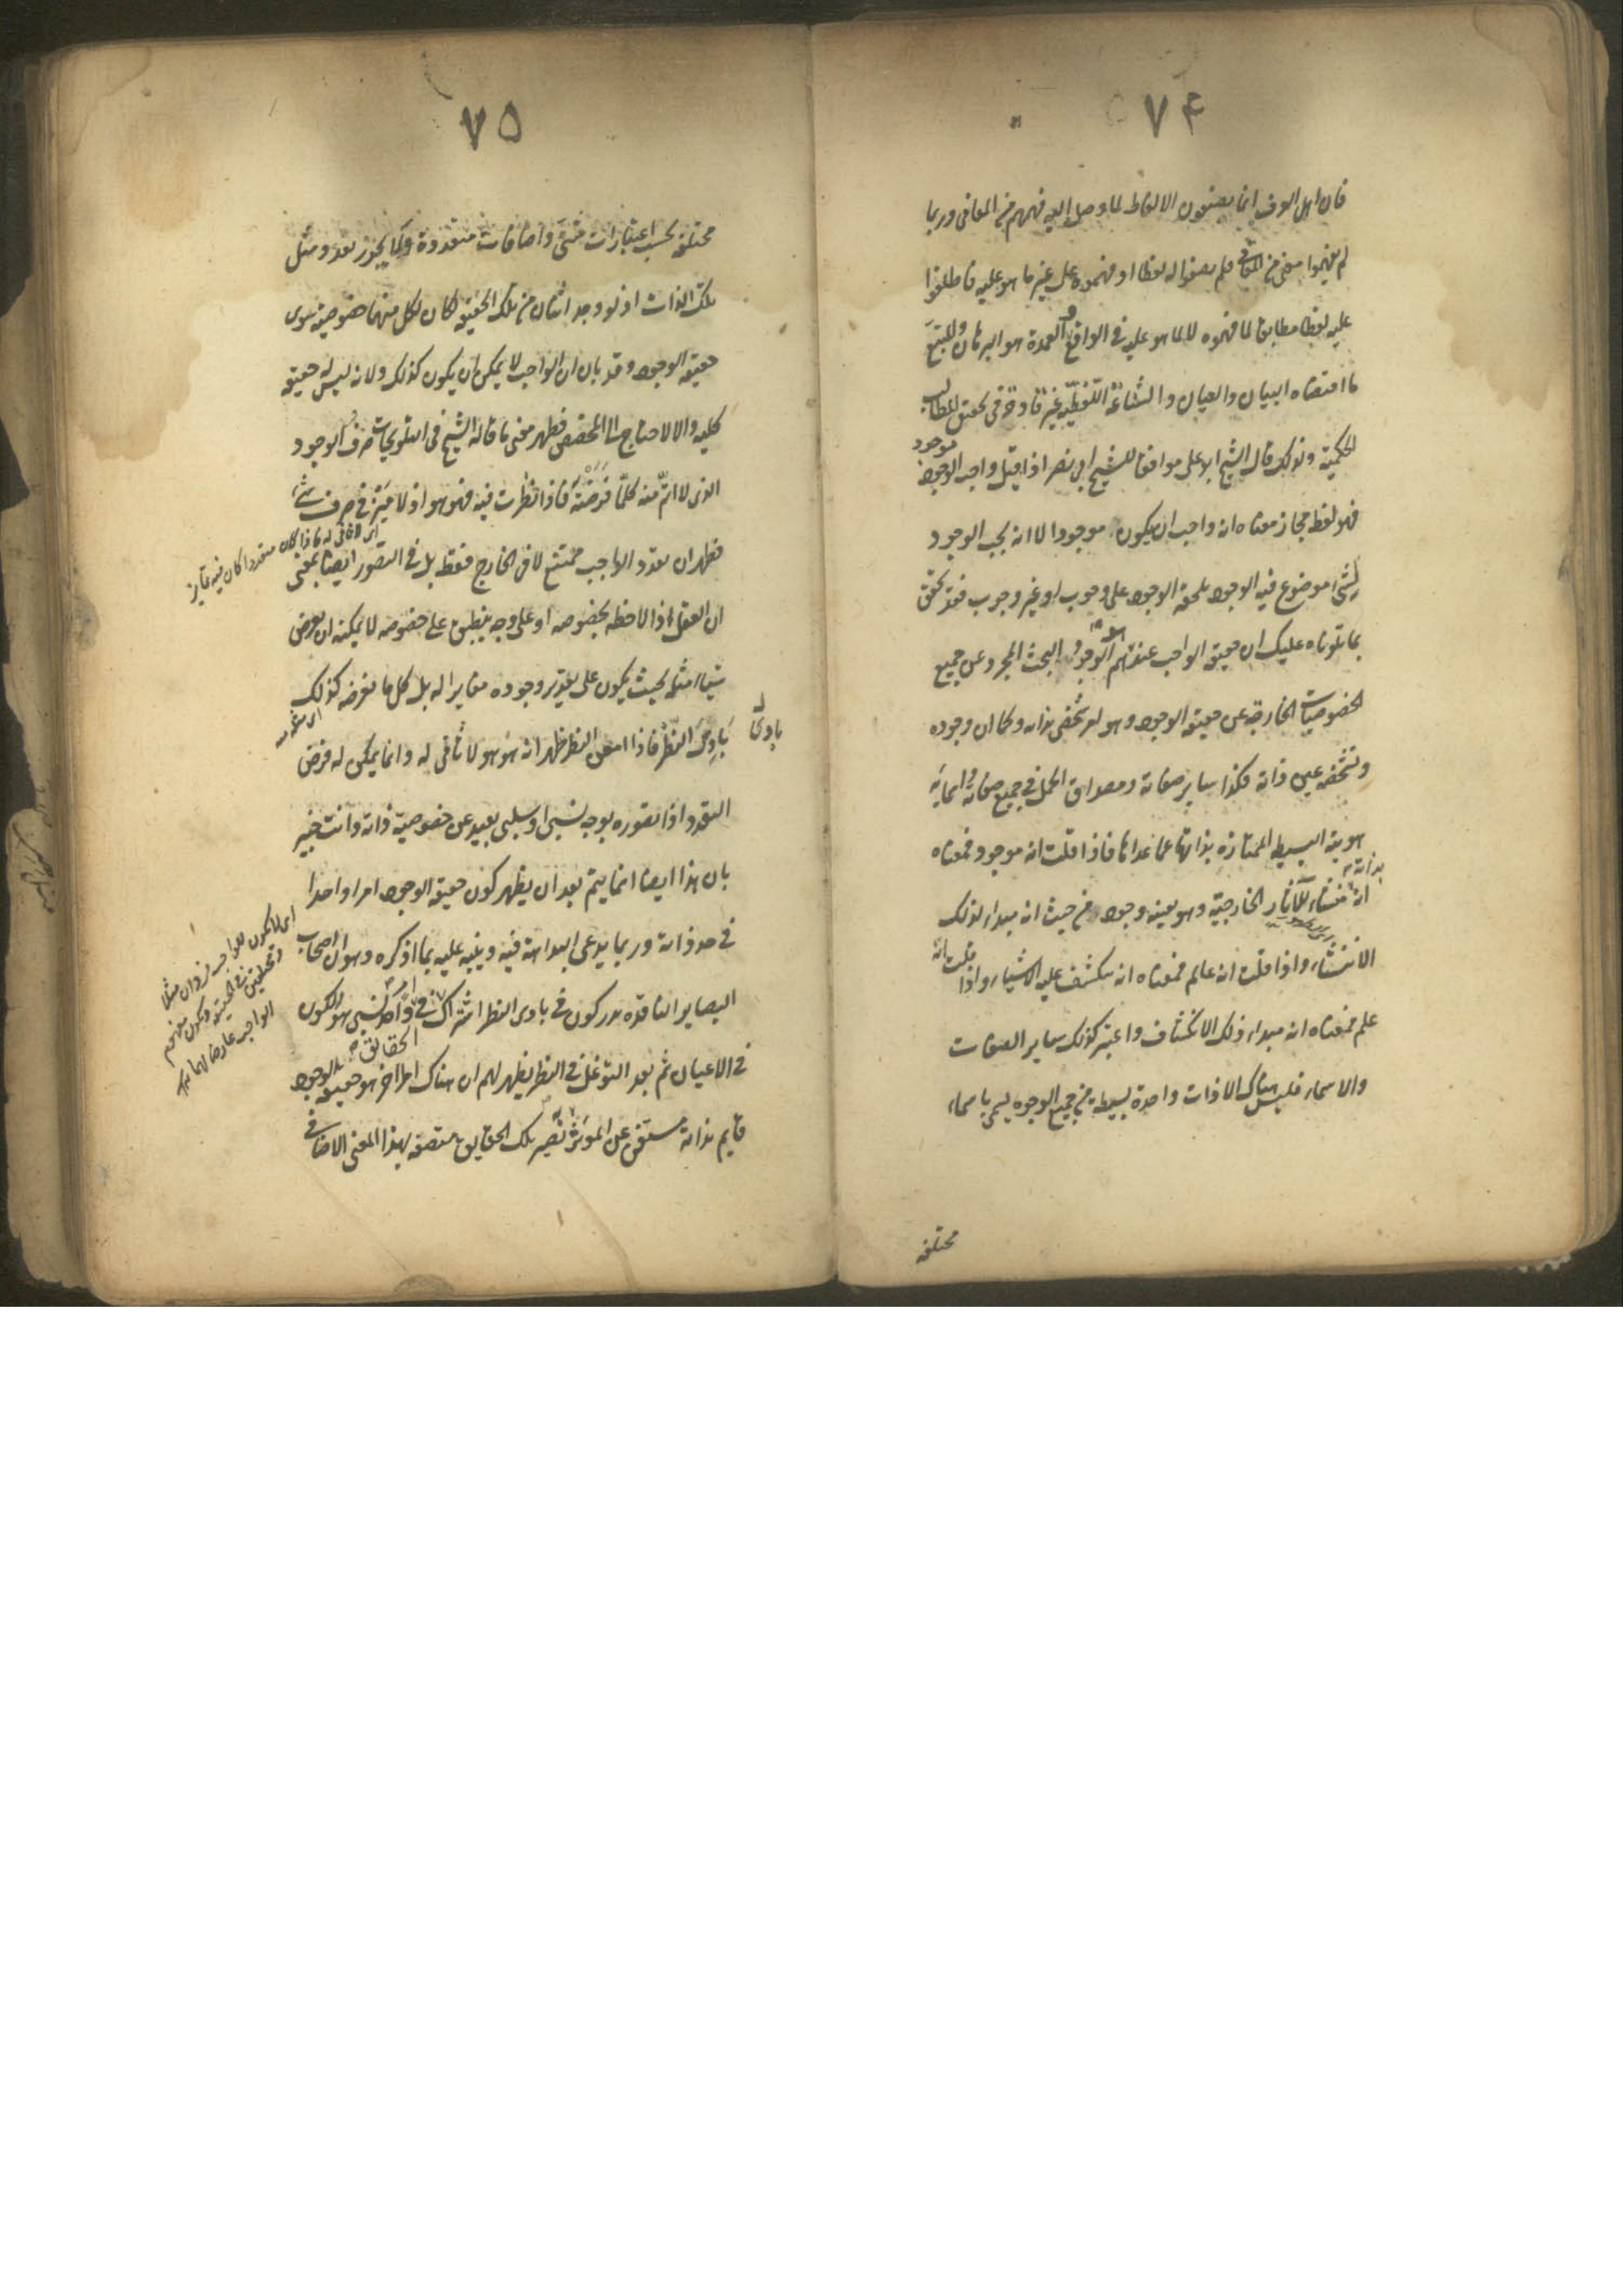 ٧۴
فان اهل العرف انما يضعون الالفاظ لما وصل اليه فهمهم من المعانى وربما
لم يفهموا معنى من المعانى فلم يضعوا له لفظا او فهموه على غير ما هو عليه فاطلقوا
عليه لفظا مطابقا لما فهموه لا لما هو عليه فى الواقع والعمدة هو البرهان والمتبع
ما اقتضاه البيان والعيان والشناعة اللفظية غير قادحة فى تحقق المطالب
الحكمية ولذلك قال الشيخ ابو على موافقا للشيخ ابى نصر اذا قيل واجب الوجود موجود
فهو لفظ مجاز معناه انه واجب ان يكون موجودا لا انه يجب الوجود
لشئ موضوع فيه الوجود يلحقه الوجود على وجوب او غير وجوب فقد تحقق
بما تلوناه عليك ان حقيقة الواجب عندهم هو الوجود البحت المجرد عن جميع
الخصوصيات الخارجة عن حقيقة الوجود وهو متشخص بذاته وكما ان وجوده
وتشخصه عين ذاته فكذا ساير صفاته ومصداق الحمل فى جميع صفاته واسمائه
هويته البسيطة الممتازة بذاتها عما عداها فاذا قلت انه موجود فمعناه
انه بذاته منشاء للآثار الخارجية وهو بعينه وجود من حيث انه مبداء لذلك
الانتشاء واذا قلت انه عالم فمعناه انه ينكشف عليه الاشياء واذا قلت انه
علم فمعناه انه مبداء ذلك الانكشاف واعتبر كذلك ساير الصفات
والاسماء فليس هناك الا ذات واحدة بسيطة من جميع الوجوه يسمى باسماء
مختلفة
٧۵
مختلفة بحسب اعتبارات شتى واضافات متعددة ولا يجوز تعدد مثل
تلك الذات اذ لو وجد اثنان من تلك الحقيقة لكان لكل منهما خصوصية سوى
حقيقة الوجود وقد بان ان الواجب لا يمكن ان يكون كذلك ولانه ليس له حقيقة
كلية والا لاحتاج الى المخصص فظهر معنى ما قاله الشيخ فى التلويحات صرف الوجود
الذى لا اتم منه كلما فرضته فاذا نظرت فيه فهو هو اذ لا ميز فى صرف شئ
اى لا ثانى له فاذا كان متعددا كان فيه تمايز
فظهر ان تعدد الواجب ممتنع لا فى الخارج فقط بل فى التصور ايضا بمعنى
ان العقل اذا لاحظه بخصوصه او على وجه ينطبق على خصوصه لا يمكنه ان يفرض
شيئا مثله بحيث يكون على تقدير وجوده مغايرا له بل كل ما يفرضه كذلك
بادى النظر فاذا امعن النظر ظهر انه هو هو لا ثانى له وانما يمكن له فرض
بادى
التعدد اذا تصوره بوجه نسبى او سلبى بعيد عن خصوصية ذاته وانت خبير
بان هذا ايضا انما يتم بعد ان يظهر كون حقيقة الوجود امرا واحدا
فى حد ذاته وربما يدعى البداهة فيه وينبه عليه بما اذكره وهو ان اصحاب
البصاير الناقدة يدركون فى بادى النظر اشتراك الحقائق فى امر واحد نسبى هو الكون
فى الاعيان ثم بعد التوغل فى النظر يظهر لهم ان هناك امرا اخر هو حقيقة الوجود
قايم بذاته مستغن عن المؤثر تصير تلك الحقايق متصفة بهذا المعنى الاضافى
اى لا يكون للواجب فردان مثلا
الواجب عارضا لهما